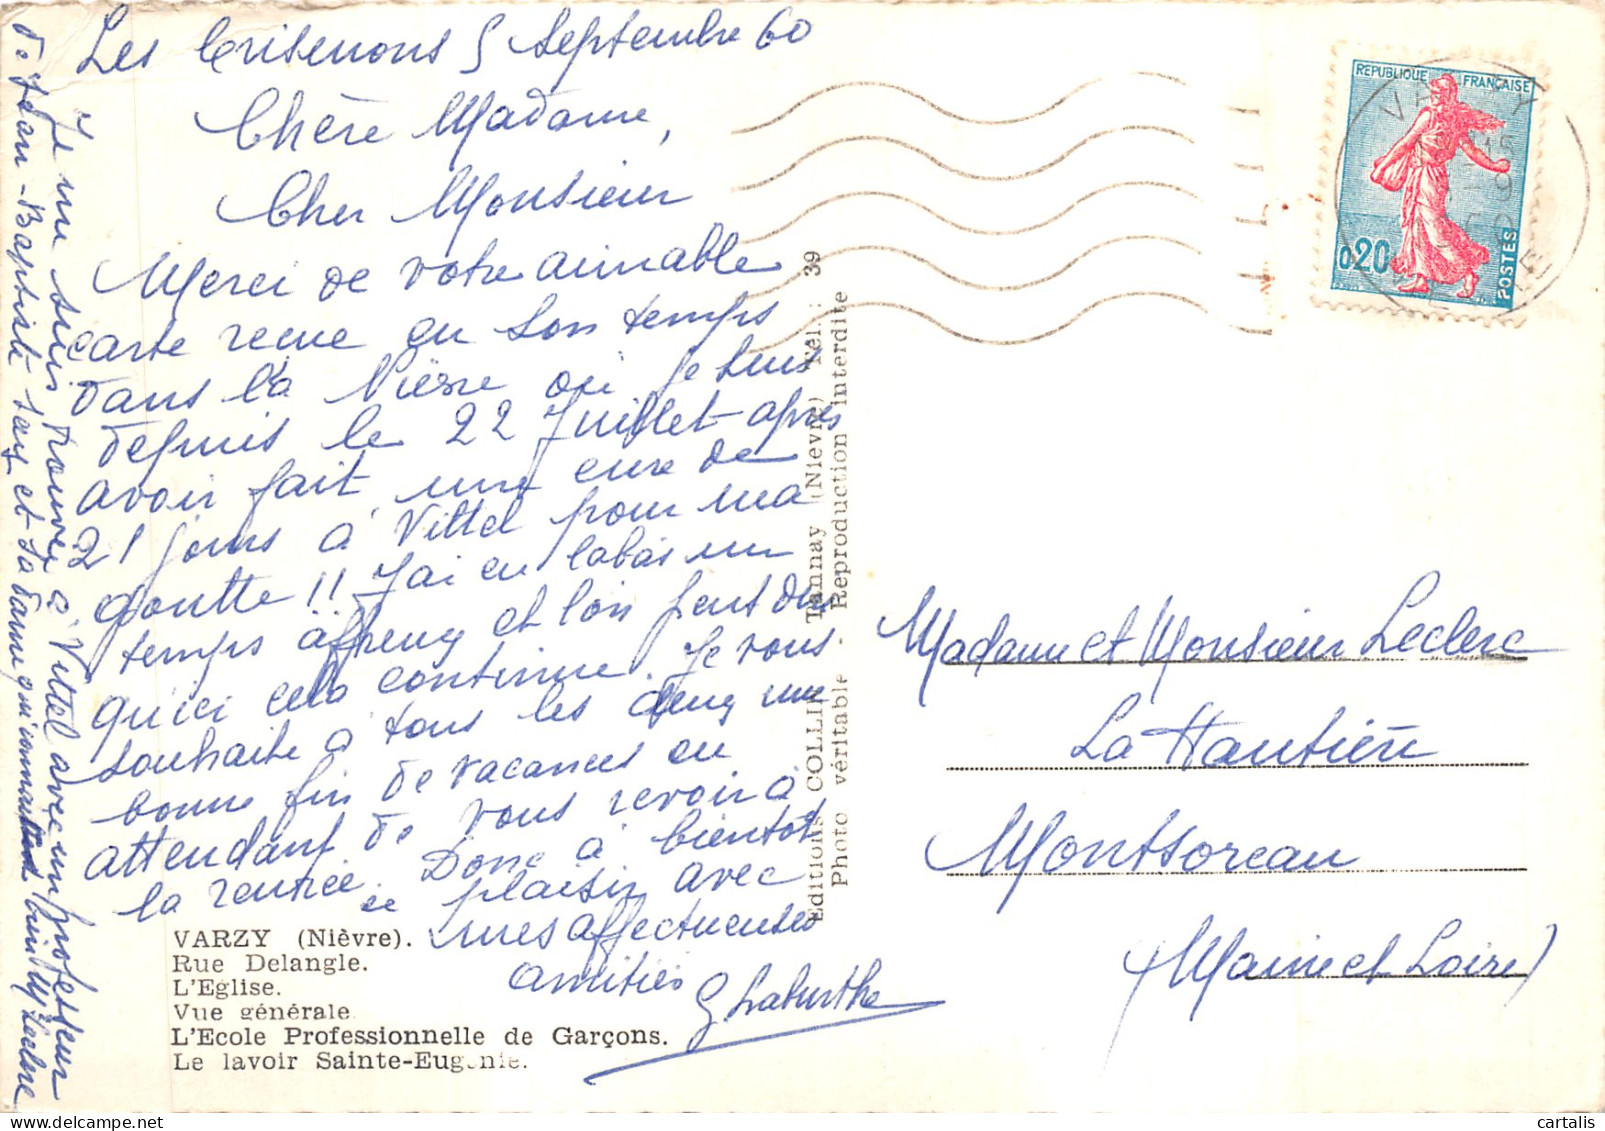 Les Crisenons 5 Septembre 60
Chère Madame,
Cher Monsieur
Merci de votre aimable
carte reçue en son temps
dans la Nièvre où je suis
depuis le 22 Juillet après
avoir fait une cure de
21 jours à Vittel pour ma
goutte !! J'ai eu labas un
temps affreux et l'on peut dire
qu'ici cela continue. Je vous
souhaite à tous les deux une
bonne fin de vacances en
attendant de vous revoir à
la rentrée. Donc à bientôt
ce plaisir avec
mes affectueuses
amitiés G Laburthe
Je me suis trouvé à Vittel avec un professeur
de Jean-Baptiste Say et sa femme qui connaissent bien M Leclerc
VARZY (Nièvre).
Rue Delangle.
L'Eglise.
Vue générale
L'Ecole Professionnelle de Garçons.
Le lavoir Sainte-Eugénie.
Editions COLLIN - Tannay (Nievre) Tél. : 39
Photo véritable - Reproduction interdite
REPUBLIQUE FRANÇAISE
0,20
POSTES
VARZY
Madame et Monsieur Leclerc
La
Montsoreau
(Maine et Loire)
cartalis